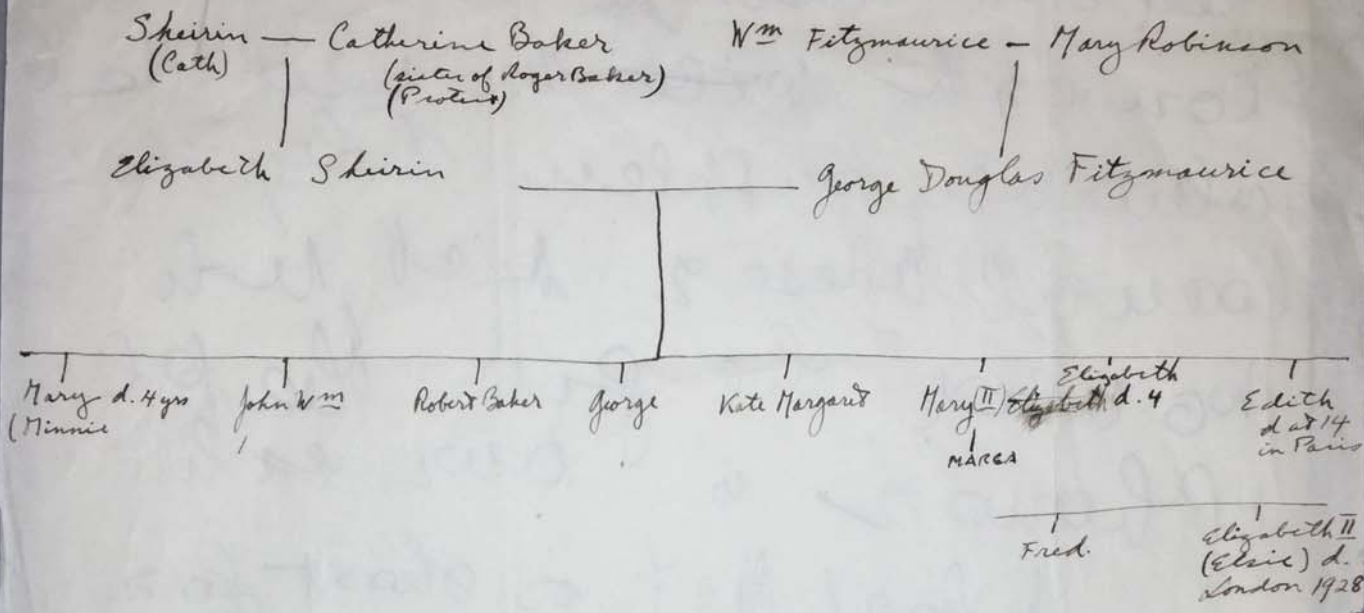 Sheirin — Catherine Baker
(Cath) (sister of Roger Baker)
(Protest)
Wm Fitzmaurice – Mary Robinson
Elizabeth Sheirin
George Douglas Fitzmaurice
Mary d. 4 yrs
(Minnie
John Wm
Robert Baker
George
Kate Margaret
Mary (II)
MARGA
Elizabeth
Elizabeth d. 4
Edith
d at 14
in Paris
Fred.
Elizabeth II
(Elsie) d.
London 1928